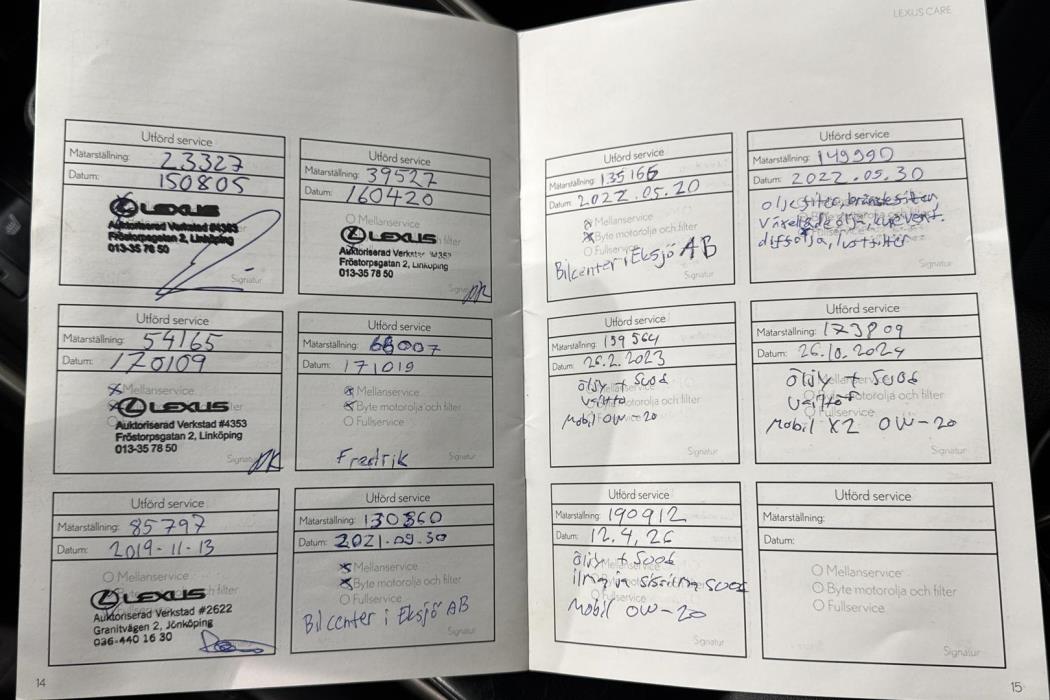 LEXUS CARE
Utförd service
Mätarställning: 23327
Datum: 150805
LEXUS
Auktoriserad Verkstad #4353
Fröstorpsgatan 2, Linköping
013-35 78 50
Signatur
Utförd service
Mätarställning: 39527
Datum: 160420
Mellanservice
LEXUS
Auktoriserad Verkstad #4353
Fröstorpsgatan 2, Linköping
013-35 78 50
Utförd service
Mätarställning: 54165
Datum: 170109
Mellanservice
LEXUS
Auktoriserad Verkstad #4353
Fröstorpsgatan 2, Linköping
013-35 78 50
Utförd service
Mätarställning: 68007
Datum: 171019
Mellanservice
Byte motorolja och filter
Fullservice
Fredrik
Signatur
Utförd service
Mätarställning: 85797
Datum: 2019-11-13
Mellanservice
LEXUS
Auktoriserad Verkstad #2622
Granitvägen 2, Jönköping
036-440 16 30
Utförd service
Mätarställning: 130860
Datum: 2021.09.30
Mellanservice
Byte motorolja och filter
Fullservice
Bilcenter i Eksjö AB
Signatur
14
Utförd service
Mätarställning: 135166
Datum: 2022.05.20
Mellanservice
Byte motorolja och filter
Fullservice
Bilcenter i Eksjö AB
Signatur
Utförd service
Mätarställning: 149990
Datum: 2022.05.30
oljefilter, bränslefilter,
diffolja, luftfilter
Signatur
Utförd service
Mätarställning: 159564
Datum: 26.2.2023
öljy + suod
vaihto
Mobil 0W-20
Signatur
Utförd service
Mätarställning: 173809
Datum: 26.10.2024
öljy + suod
vaihto
Mobil X2 0W-20
Signatur
Utförd service
Mätarställning: 190912
Datum: 12.4.26
öljy + suod
ilma ja sisäilma suod
Mobil 0W-20
Signatur
Utförd service
Mätarställning:
Datum:
Mellanservice
Byte motorolja och filter
Fullservice
Signatur
15